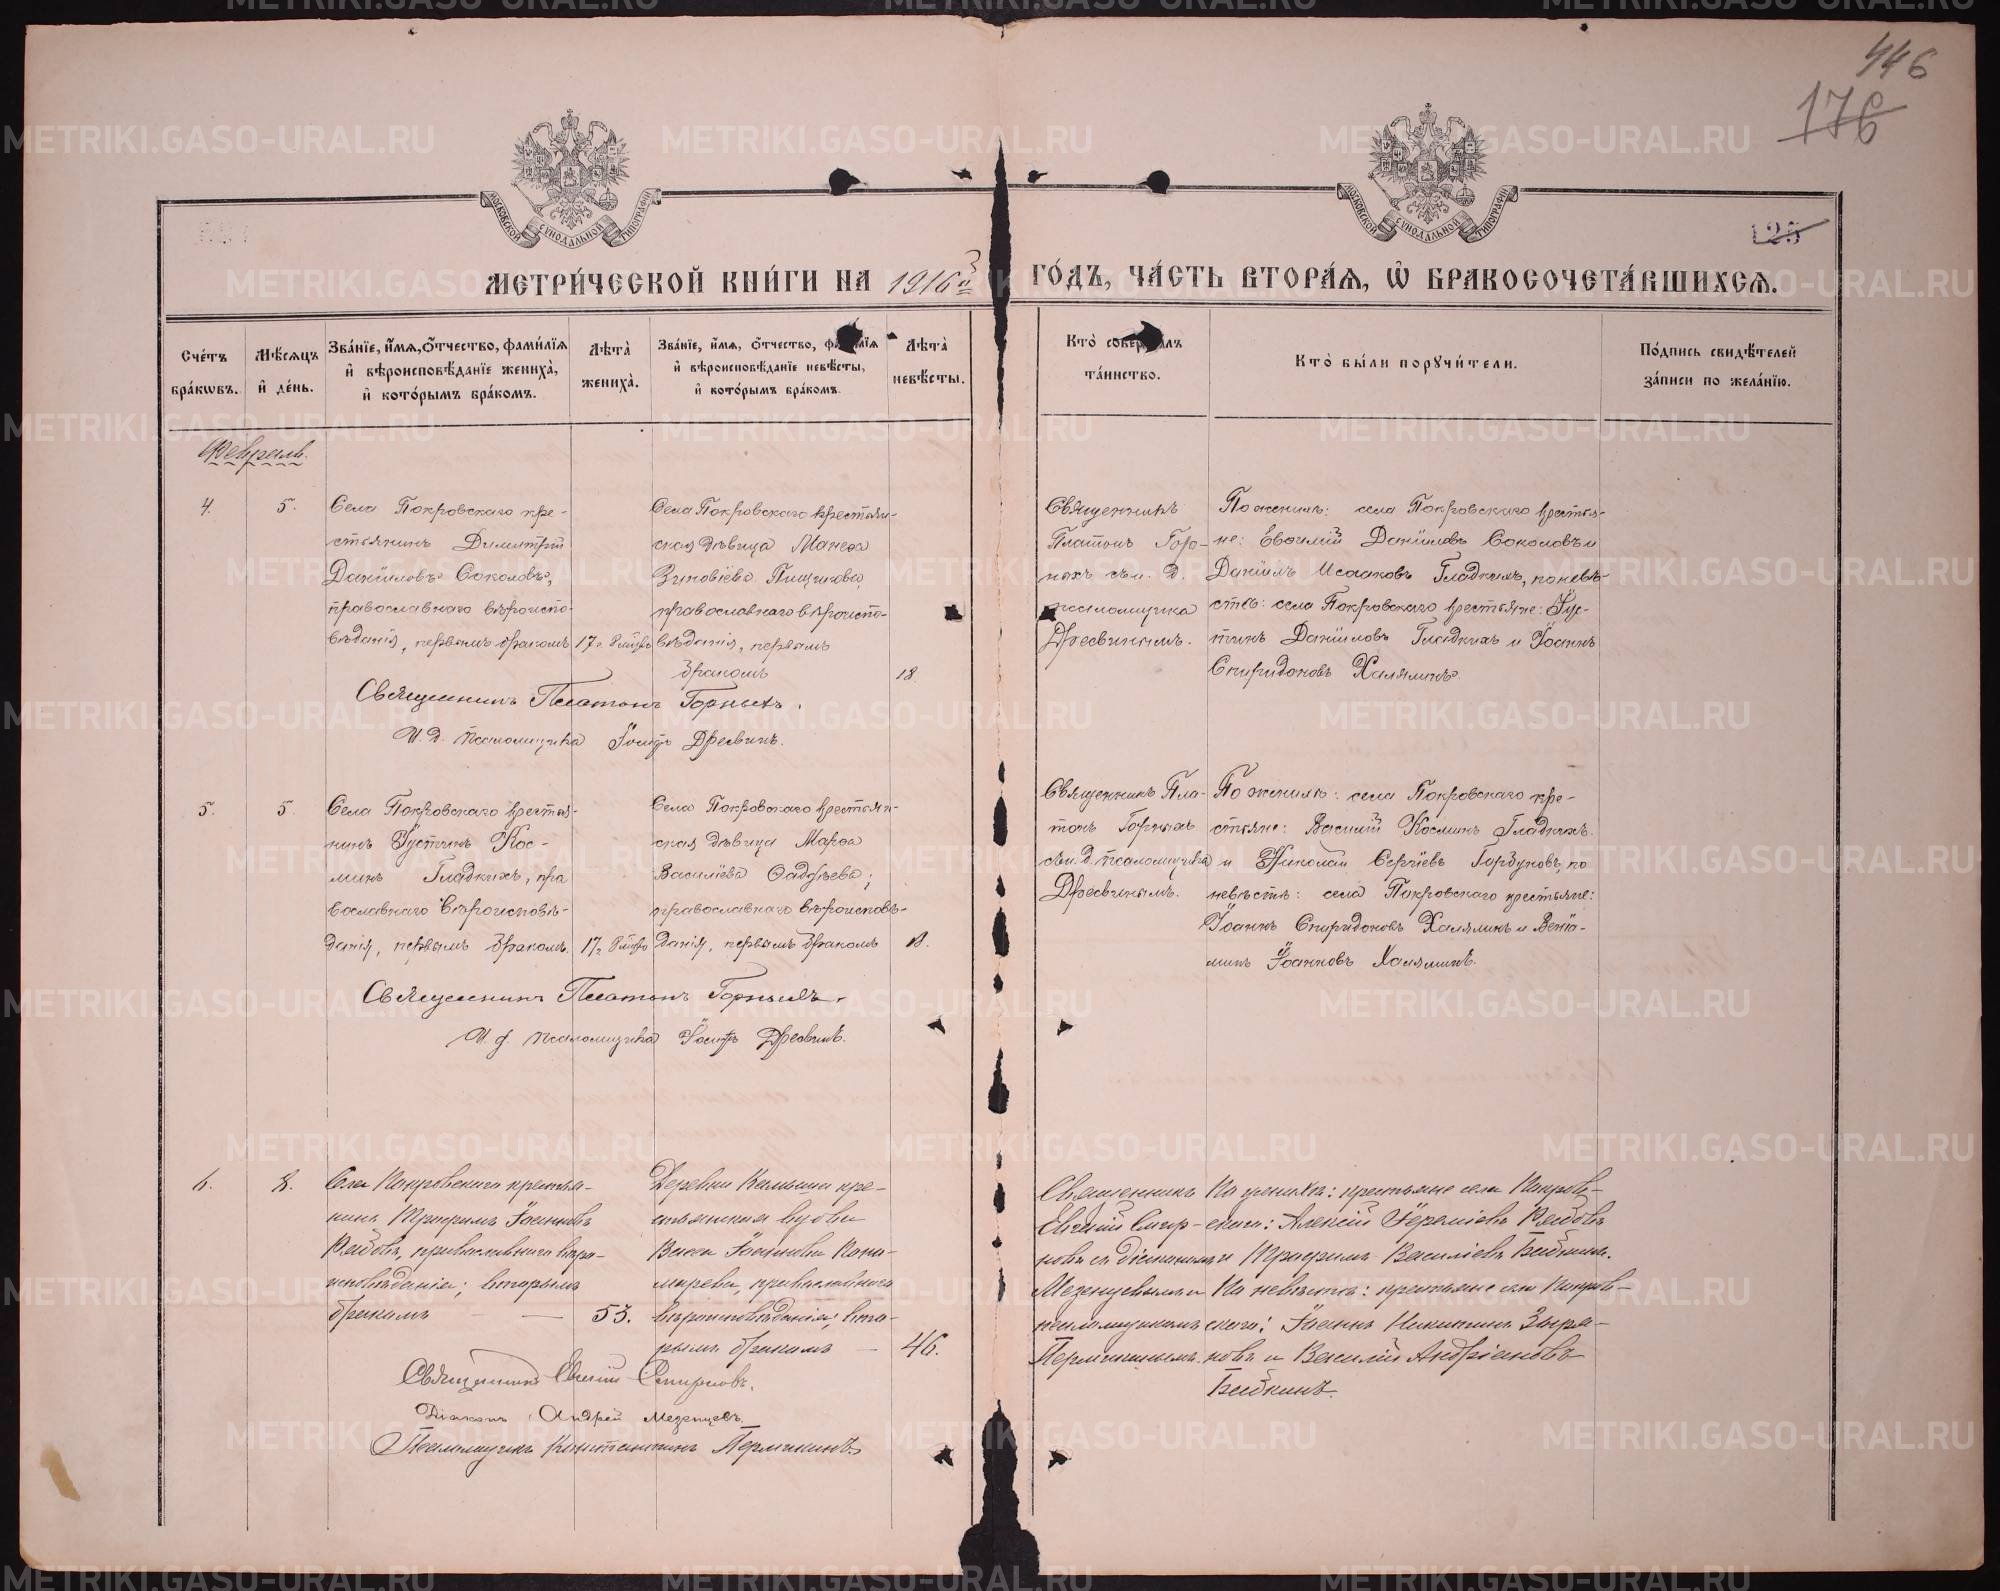 446
176
125
МОСКОВСКОЙ СѴНОДАЛЬНОЙ ТИПОГРАФІИ
МОСКОВСКОЙ СѴНОДАЛЬНОЙ ТИПОГРАФІИ
МЕТРИ́ЧЕСКОЙ КНИ́ГИ НА 1916й ГО́ДЪ, ЧА́СТЬ ВТОРА́Я, Ѡ БРАКОСОЧЕТА́ВШИХСЯ.
Сче́тъ бра́кѡвъ.
Мѣ́сяцъ и҆ де́нь.
Зва́нїе, и҆́мя, ѻ҆́тчество, фами́лїя и҆ вѣроисповѣ́данїе жениха̀, и҆ кото́рымъ бра́комъ.
Лѣ́та жениха̀.
Зва́нїе, и҆́мя, ѻ҆́тчество, фами́лїя и҆ вѣроисповѣ́данїе невѣ́сты, и҆ кото́рымъ бра́комъ.
Лѣ́та невѣ́сты.
Кто̀ соверша́лъ та́инство.
Кто̀ бы́ли поручи́тели.
По́дпись свидѣ́телей за́писи по жела́нїю.
Февраль.
4.
5.
Села Покровскаго кре-
стьянинъ Димитрій
Даніиловъ Соколовъ,
православнаго вѣроиспо-
вѣданія, первымъ бракомъ
17
Села Покровскаго крестьян-
ская дѣвица Манефа
Зиновіева Пищикова,
православнаго вѣроиспо-
вѣданія, первымъ
бракомъ
18
Священникъ
Платонъ Гор-
ныхъ съ и. д.
псаломщика
Дресвинымъ.
По женихѣ: села Покровскаго крестья-
не: Евѳимій Даніиловъ Соколовъ и
Даніилъ Исааковъ Гладкихъ, по невѣ-
стѣ: села Покровскаго крестьяне: Іус-
тинъ Даніиловъ Гладкихъ и Іоаннъ
Спиридоновъ Халяминъ.
Священникъ Платонъ Горныхъ.
И. д. псаломщика Іосифъ Дресвинъ.
5.
5.
Села Покровскаго крестья-
нинъ Іустинъ Кос-
минъ Гладкихъ, пра
вославнаго вѣроисповѣ-
данія, первымъ бракомъ.
17
Села Покровскаго крестьян-
ская дѣвица Марѳа
Василіева Ѳаддѣева;
православнаго вѣроисповѣ-
данія, первымъ бракомъ
18.
Священникъ Пла-
тонъ Горныхъ
съ и. д. псаломщика
Дресвинымъ.
По женихѣ: села Покровскаго кре-
стьяне: Василій Косминъ Гладкихъ
и Николай Сергіевъ Горбуновъ, по
невѣстѣ: села Покровскаго крестьяне:
Іоаннъ Спиридоновъ Халяминъ и Веніа-
минъ Іоанновъ Халяминъ.
Священникъ Платонъ Горныхъ.
И. д. псаломщика Іосифъ Дресвинъ.
6.
8.
Села Покровскаго крестья-
нинъ Трофимъ Іоанновъ
православнаго вѣро-
исповѣданія; вторымъ
бракомъ
53.
Деревни Камыши кре-
стьянская вдова
Васса Іоаннова Пона-
марева, православнаго
вѣроисповѣданія; вто-
рымъ бракомъ
46.
Священникъ
Евгеній Смир-
новъ съ діакономъ
Мезенцевымъ и
псаломщикомъ
Пермикинымъ.
По женихѣ: крестьяне села Покров-
скаго: Алексій Іереміевъ
и Трофимъ Василіевъ Бабкинъ.
По невѣстѣ: крестьяне села Покров-
скаго: Іоаннъ Никитинъ Зыря-
новъ и Василій Андріановъ
Бабкинъ.
Священникъ Евгеній Смирновъ.
Діаконъ Андрей Мезенцевъ.
Псаломщикъ Константинъ Пермикинъ.
METRIKI.GASO-URAL.RU